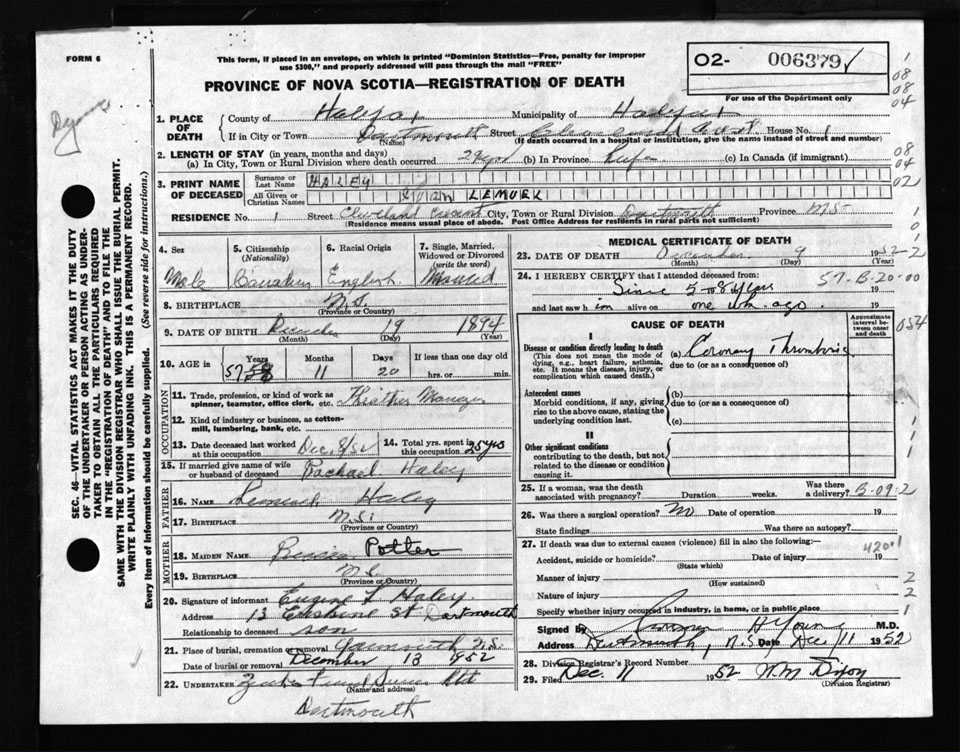 FORM 6
This form, if placed in an envelope, on which is printed "Dominion Statistics—Free, penalty for improper
use $300," and properly addressed will pass through the mail "FREE"
02- 006379
For use of the Department only
PROVINCE OF NOVA SCOTIA—REGISTRATION OF DEATH
1. PLACE OF DEATH
County of Halifax Municipality of Halifax
If in City or Town Dartmouth Street House No. 1
(Name) (If death occurred in a hospital or institution, give the name instead of street and number)
2. LENGTH OF STAY (in years, months and days)
(a) In City, Town or Rural Division where death occurred 29 yrs (b) In Province Life (c) In Canada (if immigrant)
3. PRINT NAME OF DECEASED
Surname or Last Name HALEY
All Given or Christian Names LEMUEL
RESIDENCE No. 1 Street Cleveland Crescent City, Town or Rural Division Dartmouth Province N.S.
(Residence means usual place of abode. Post Office Address for residents in rural parts not sufficient)
4. Sex Male
5. Citizenship (Nationality) Canadian
6. Racial Origin English
7. Single, Married, Widowed or Divorced (write the word) Married
8. BIRTHPLACE N.S.
(Province or Country)
9. DATE OF BIRTH 19 1894
(Month) (Day) (Year)
10. AGE in Years 57 Months 11 Days 20 If less than one day old
hrs. or min.
OCCUPATION
11. Trade, profession, or kind of work as spinner, teamster, office clerk, etc. Manager
12. Kind of industry or business, as cotton-mill, lumbering, bank, etc.
13. Date deceased last worked at this occupation Dec. 8/52
14. Total yrs. spent in this occupation 25 yrs
15. If married give name of wife or husband of deceased Rachael Haley
FATHER
16. NAME Lemuel Haley
17. BIRTHPLACE N.S.
(Province or Country)
MOTHER
18. MAIDEN NAME Potter
19. BIRTHPLACE N.S.
(Province or Country)
20. Signature of informant Eugene L Haley
Address 13 Erskine St Dartmouth
Relationship to deceased son
21. Place of burial, cremation or removal Yarmouth N.S.
Date of burial or removal December 13 1952
22. UNDERTAKER Ltd
(Name and address)
Dartmouth
MEDICAL CERTIFICATE OF DEATH
23. DATE OF DEATH December 9 1952
(Month) (Day) (Year)
24. I HEREBY CERTIFY that I attended deceased from:
Since 5 or 8 yrs 19
and last saw h im alive on one wk. ago 19
57-B-20-00
CAUSE OF DEATH
Approximate interval between onset and death
I
Disease or condition directly leading to death
(This does not mean the mode of dying, e.g., heart failure, asthenia, etc. It means the disease, injury, or complication which caused death.)
(a) Coronary Thrombosis
due to (or as a consequence of)
Antecedent causes
Morbid conditions, if any, giving rise to the above cause, stating the underlying condition last.
(b)
due to (or as a consequence of)
(c)
II
Other significant conditions
contributing to the death, but not related to the disease or condition causing it.
25. If a woman, was the death associated with pregnancy? Duration weeks. Was there a delivery? B-09-2
26. Was there a surgical operation? No Date of operation 19
State findings Was there an autopsy?
27. If death was due to external causes (violence) fill in also the following: 420.1
Accident, suicide or homicide? Date of injury 19
(State which)
Manner of injury
(How sustained)
Nature of injury
Specify whether injury occurred in industry, in home, or in public place
Signed by H Young M.D.
Address Dartmouth, N.S Date Dec 11 1952
28. Division Registrar's Record Number
29. Filed Dec. 11 1952 W.M. Dixon
(Division Registrar)
SEC. 46—VITAL STATISTICS ACT MAKES IT THE DUTY
OF THE UNDERTAKER OR PERSON ACTING AS UNDER-
TAKER TO OBTAIN ALL THE PARTICULARS REQUIRED
IN THE "REGISTRATION OF DEATH" AND TO FILE THE
SAME WITH THE DIVISION REGISTRAR WHO SHALL ISSUE THE BURIAL PERMIT.
WRITE PLAINLY WITH UNFADING INK. THIS IS A PERMANENT RECORD.
Every item of information should be carefully supplied. (See reverse side for instructions.)